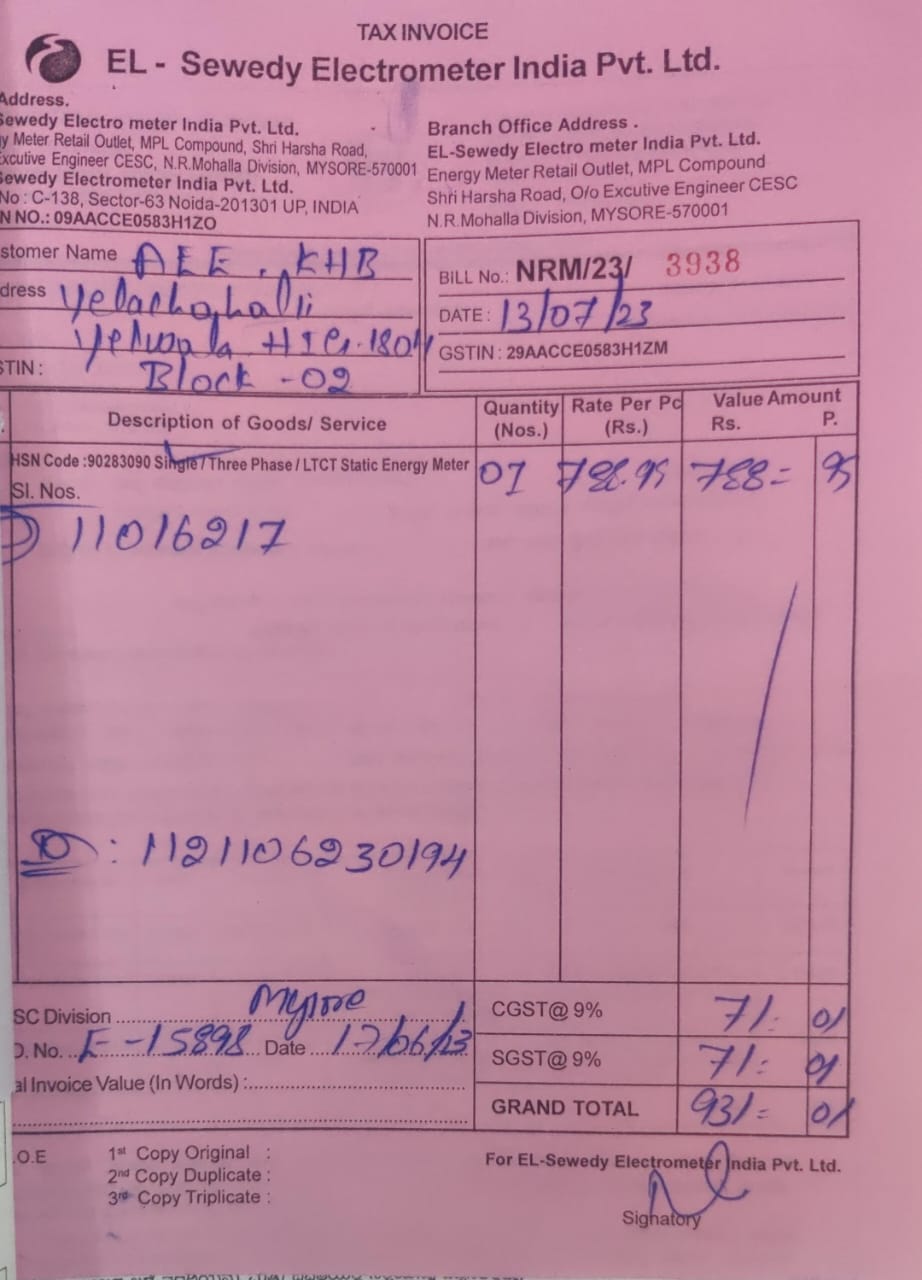 TAX INVOICE
EL - Sewedy Electrometer India Pvt. Ltd.
Address.
Sewedy Electro meter India Pvt. Ltd.
y Meter Retail Outlet, MPL Compound, Shri Harsha Road,
Excutive Engineer CESC, N.R.Mohalla Division, MYSORE-570001
Sewedy Electrometer India Pvt. Ltd.
No : C-138, Sector-63 Noida-201301 UP, INDIA
N NO.: 09AACCE0583H1ZO
Branch Office Address .
EL-Sewedy Electro meter India Pvt. Ltd.
Energy Meter Retail Outlet, MPL Compound
Shri Harsha Road, O/o Excutive Engineer CESC
N.R.Mohalla Division, MYSORE-570001
stomer Name AEE, KHB
dress Yelachahalli
Yelwala HIG-180
Block -02
STIN :
BILL No.: NRM/23/ 3938
DATE : 13/07/23
GSTIN : 29AACCE0583H1ZM
Description of Goods/ Service Quantity (Nos.) Rate Per Pc (Rs.) Value Amount Rs. P.
HSN Code :90283090 Single / Three Phase / LTCT Static Energy Meter 01 788.95 788= 95
Sl. Nos.
11016217
ID : 11211062 30194
SC Division Mysore
O. No. E-15898 Date 17/06/23
al Invoice Value (In Words) :
CGST@ 9% 71. 01
SGST@ 9% 71. 01
GRAND TOTAL 931= 01
.O.E
1st Copy Original :
2nd Copy Duplicate :
3rd Copy Triplicate :
For EL-Sewedy Electrometer India Pvt. Ltd.
Signatory